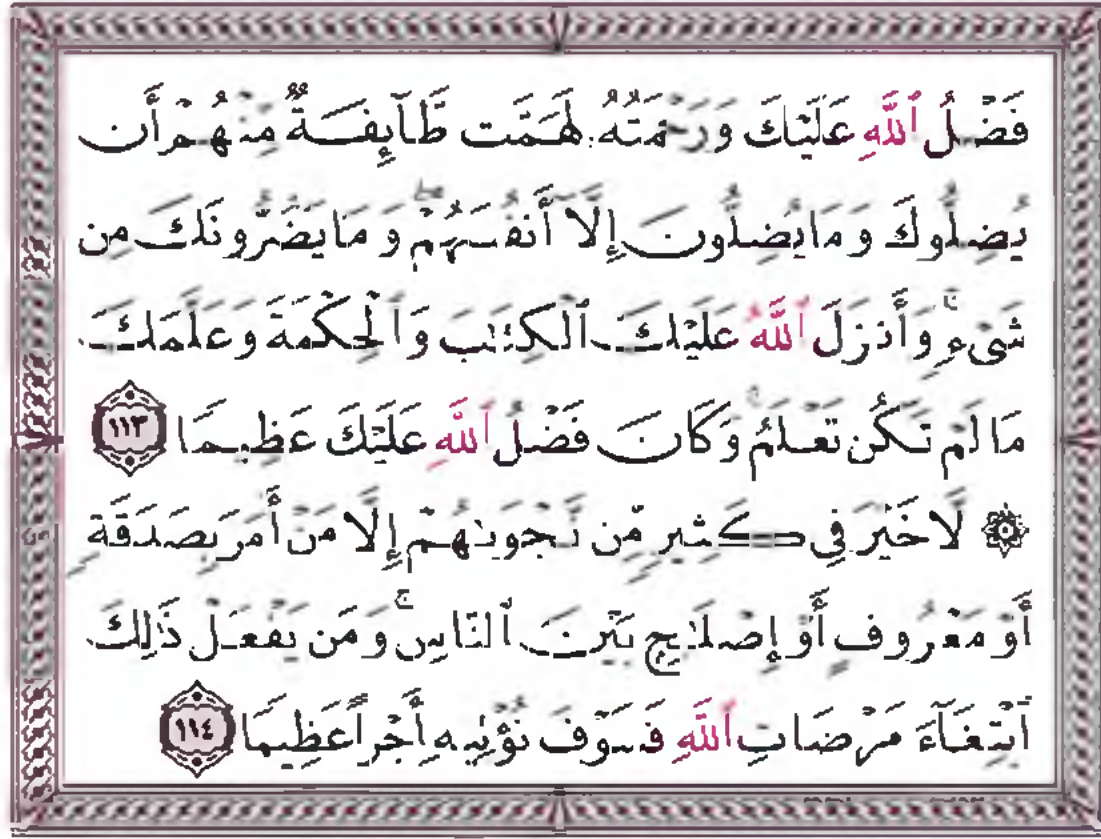 فَضۡلُ ٱللَّهِ عَلَيۡكَ وَرَحۡمَتُهُۥ لَهَمَّت طَّآئِفَةٌ مِّنۡهُمۡ أَن
يُضِلُّوكَ وَمَا يُضِلُّونَ إِلَّآ أَنفُسَهُمۡۖ وَمَا يَضُرُّونَكَ مِن
شَىۡءٍۚ وَأَنزَلَ ٱللَّهُ عَلَيۡكَ ٱلۡكِتَٰبَ وَٱلۡحِكۡمَةَ وَعَلَّمَكَ
مَا لَمۡ تَكُن تَعۡلَمُۚ وَكَانَ فَضۡلُ ٱللَّهِ عَلَيۡكَ عَظِيمًا ١١٣
۞ لَّا خَيۡرَ فِى كَثِيرٍ مِّن نَّجۡوَىٰهُمۡ إِلَّا مَنۡ أَمَرَ بِصَدَقَةٍ
أَوۡ مَعۡرُوفٍ أَوۡ إِصۡلَٰحٍۭ بَيۡنَ ٱلنَّاسِۚ وَمَن يَفۡعَلۡ ذَٰلِكَ
ٱبۡتِغَآءَ مَرۡضَاتِ ٱللَّهِ فَسَوۡفَ نُؤۡتِيهِ أَجۡرًا عَظِيمًا ١١٤